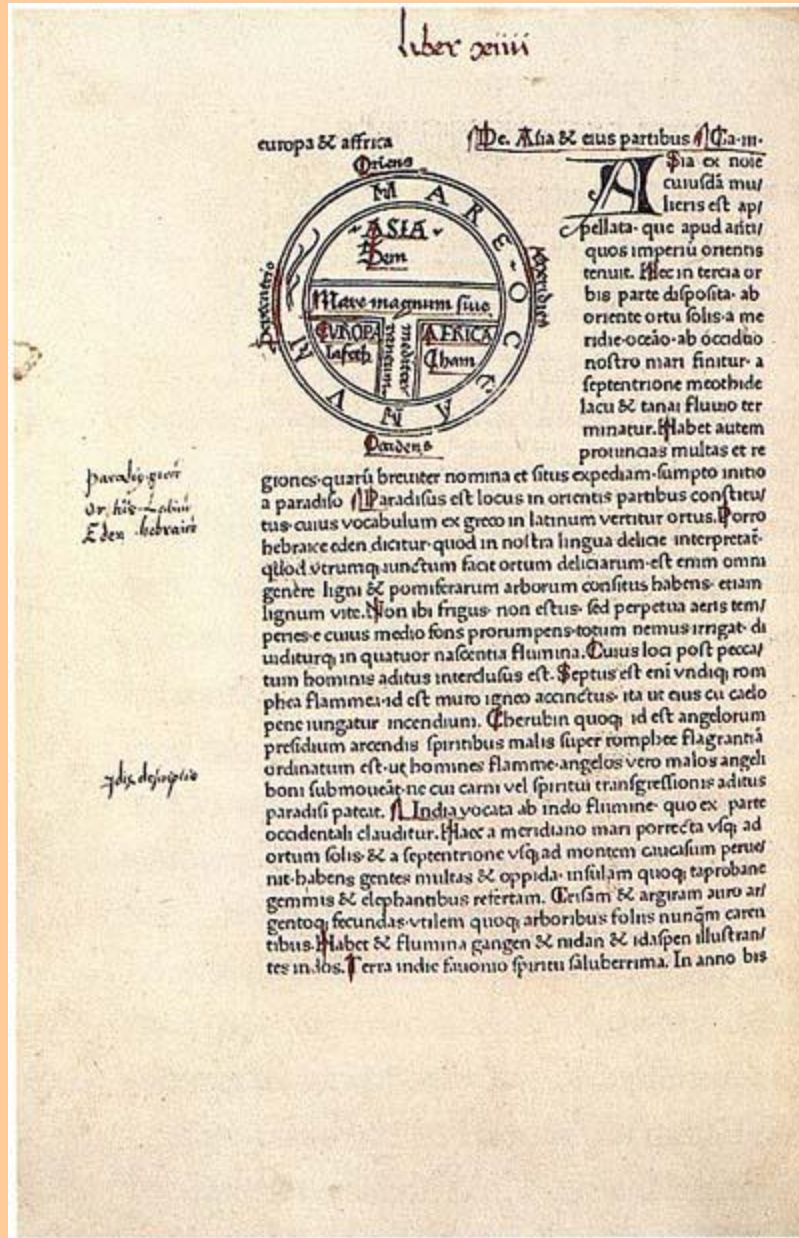 liber xiiii
europa & affrica
¶De. Asia & eius partibus ¶Ca·iii·
Oriens
MARE·OCEANUM
ASIA
Sem
Mare magnum siue
mediterraneum
EUROPA
Iafeth
AFRICA
Cham
Septentrio
Meridies
Occidens
ASia ex noīe
cuiusdā mu/
lieris est ap/
pellata· que apud anti/
quos imperiū orientis
tenuit. Hec in tercia or
bis parte disposita· ab
oriente ortu solis·a me
ridie·oceāo·ab occiduo
nostro mari finitur· a
septentrione meothide
lacu & tanai fluuio ter
minatur.Habet autem
prouincias multas et re
giones·quarū breuiter nomina et situs expediam·sumpto initio
a paradiso ¶Paradisus est locus in orientis partibus constitu/
tus·cuius vocabulum ex greco in latinum vertitur ortus.Porro
hebraice eden dicitur·quod in nostra lingua delicie interpretat̄·
qđ utrumq; iunctum facit ortum deliciarum·est enim omni
genere ligni & pomiferarum arborum consitus habens· etiam
lignum vite.Non ibi frigus· non estus· sed perpetua aeris tem/
peries·e cuius medio fons prorumpens·totum nemus irrigat· di
uiditurq; in quatuor nascentia flumina.Cuius loci post pecca/
tum hominis aditus interclusus est. Septus est eni vndiq; rom
phea flammea·id est muro igneo accinctus· ita ut eius cū caelo
pene iungatur incendium. Cherubin quoq; id est angelorum
presidium arcendis spiritibus malis super romphee flagrantiā
ordinatum est·ut homines flamme·angelos vero malos angeli
boni submoueāt·ne cui carni vel spiritui transgressionis aditus
paradisi pateat. ¶ India vocata ab indo flumine· quo ex parte
occidentali clauditur.Haec a meridiano mari porrecta vsq; ad
ortum solis·& a septentrione vsq; ad montem caucasum perue/
nit·habens gentes multas & oppida· insulam quoq; taprobane
gemmis & elephantibus refertam. Crisam & argiram auro ar/
gentoq; fecundas·vtilem quoq; arboribus foliis nunq̄m caren
tibus.Habet & flumina gangen & nidan & idaspen illustran/
tes indos.Terra indie fauonio spiritu saluberrima. In anno bis
Eden hebraice